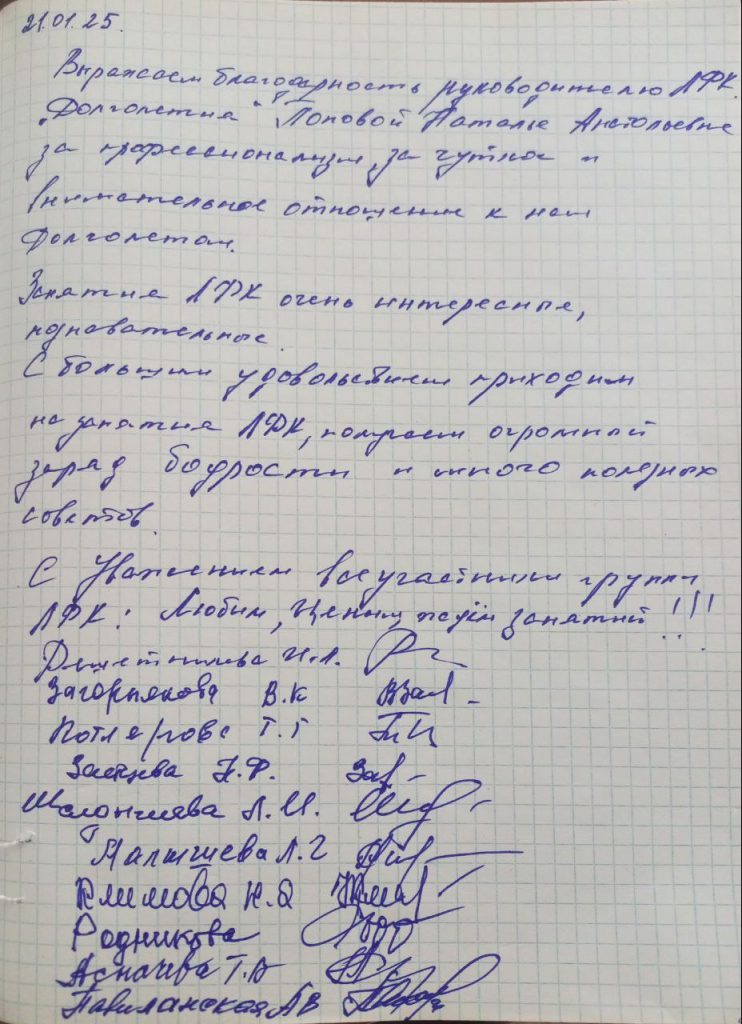 21.01.25.
Выражаем благодарность руководителю ЛФК
"Долголетия" Поповой Наталье Анатольевне
за профессионализм, за чуткое и
внимательное отношение к нам
долголетам.
Занятия ЛФК очень интересные,
познавательные.
С большим удовольствием приходим
на занятия ЛФК, получаем огромный
заряд бодрости и много полезных
советов.
С Уважением все участники группы
ЛФК: Любим, ценим, ждём занятий!!!
И.Л.
В.К
Т.Г
Зайцева Н.Ф.
Л.И.
Л.Г
Климова Н.А
Родникова
Т.А
АВ